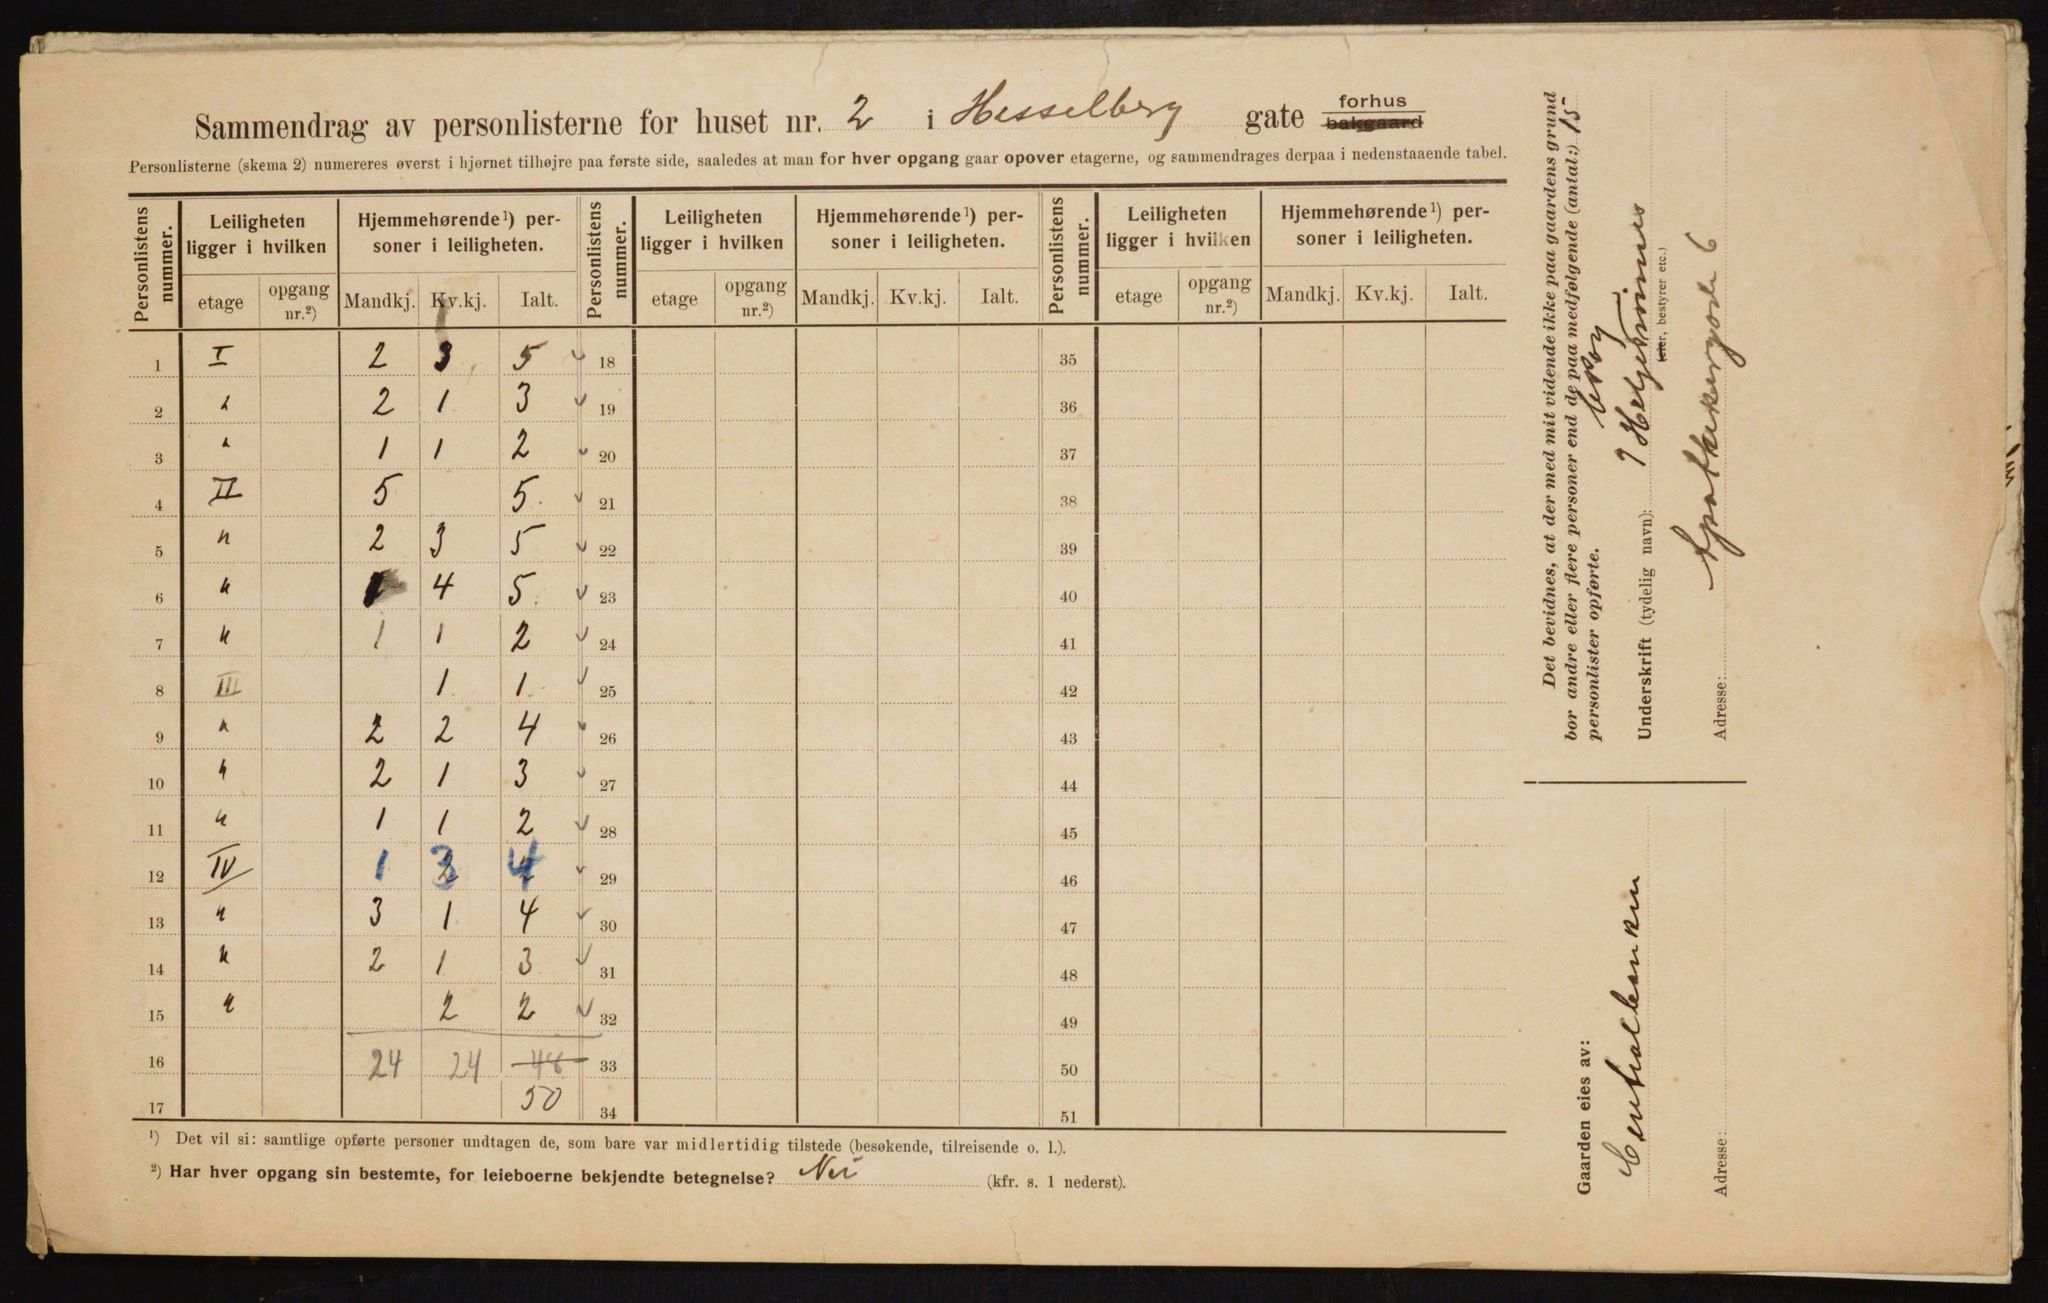 Sammendrag av personlisterne for huset nr. 2 i Hesselberg gate forhus bakgaard
Personlisterne (skema 2) numereres øverst i hjørnet tilhøjre paa første side, saaledes at man for hver opgang gaar opover etagerne, og sammendrages derpaa i nedenstaaende tabel.
Personlistens nummer. Leiligheten ligger i hvilken Hjemmehørende¹) personer i leiligheten. Personlistens nummer. Leiligheten ligger i hvilken Hjemmehørende¹) personer i leiligheten. Personlistens nummer. Leiligheten ligger i hvilken Hjemmehørende¹) personer i leiligheten.
etage opgang nr.²) Mandkj. Kv.kj. Ialt. etage opgang nr.²) Mandkj. Kv.kj. Ialt. etage opgang nr.²) Mandkj. Kv.kj. Ialt.
1 I 2 3 5 18 35
2 " 2 1 3 19 36
3 " 1 1 2 20 37
4 II 5 5 21 38
5 " 2 3 5 22 39
6 " 1 4 5 23 40
7 " 1 1 2 24 41
8 III 1 1 25 42
9 " 2 2 4 26 43
10 " 2 1 3 27 44
11 " 1 1 2 28 45
12 IV 1 3 4 29 46
13 " 3 1 4 30 47
14 " 2 1 3 31 48
15 " 2 2 32 49
16 24 24 48 33 50
17 50 34 51
¹) Det vil si: samtlige opførte personer undtagen de, som bare var midlertidig tilstede (besøkende, tilreisende o. l.).
²) Har hver opgang sin bestemte, for leieboerne bekjendte betegnelse? Nei (kfr. s. 1 nederst).
Det bevidnes, at der med mit vidende ikke paa gaardens grund
bor andre eller flere personer end de paa medfølgende (antal:) 15
personlister opførte.
Underskrift (tydelig navn):
(eier, bestyrer etc.)
Adresse: 6
Gaarden eies av:
Centralbanken
Adresse: